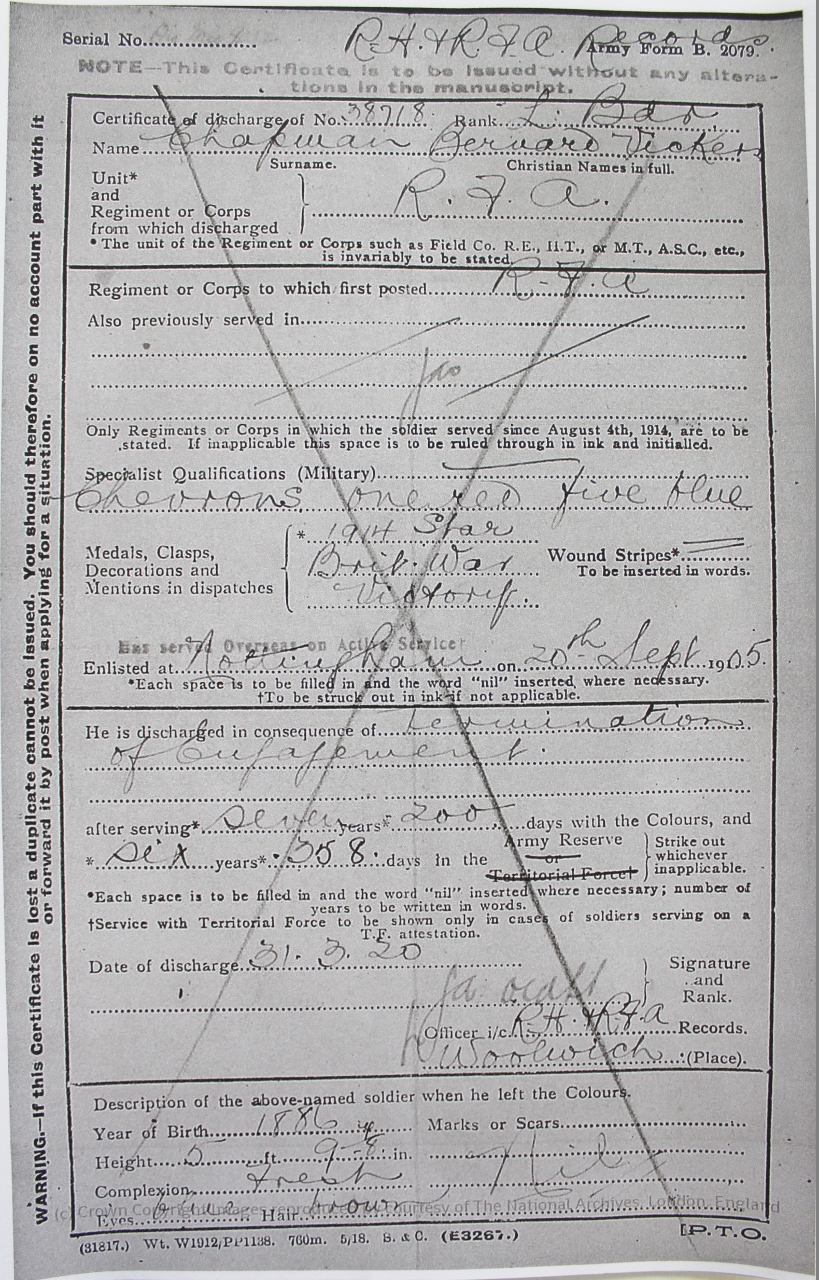 Serial No.
R.H. & R.F.A. Records
Army Form B. 2079.
NOTE—This Certificate is to be issued without any altera-
tions in the manuscript.
Certificate of discharge of No. 38718 Rank L. Bdr
Name Chapman Bernard Vickers
Surname. Christian Names in full.
Unit*
and
Regiment or Corps
from which discharged
R.F.A.
* The unit of the Regiment or Corps such as Field Co. R.E., H.T., or M.T., A.S.C., etc.,
is invariably to be stated.
Regiment or Corps to which first posted R.F.A
Also previously served in
Only Regiments or Corps in which the soldier served since August 4th, 1914, are to be
stated. If inapplicable this space is to be ruled through in ink and initialled.
Specialist Qualifications (Military)
Chevrons one red five blue
Medals, Clasps,
Decorations and
Mentions in dispatches
* 1914 Star
Brit. War
Victory.
Wound Stripes*
To be inserted in words.
Has served Overseas on Active Service†
Enlisted at Nottingham on 20th Sept 1905.
*Each space is to be filled in and the word "nil" inserted where necessary.
†To be struck out in ink if not applicable.
He is discharged in consequence of termination
of Engagement.
after serving* seven years* 200 days with the Colours, and
* six years* 358 days in the Army Reserve
or
Territorial Force†
Strike out
whichever
inapplicable.
*Each space is to be filled in and the word "nil" inserted where necessary; number of
years to be written in words.
†Service with Territorial Force to be shown only in cases of soldiers serving on a
T.F. attestation.
Date of discharge 31. 3. 20
Signature
and
Rank.
Officer i/c. R.H. & R.F.A Records.
Woolwich (Place).
Description of the above-named soldier when he left the Colours.
Year of Birth 1886 Marks or Scars
Height 5 ft. 9-8 in.
Nil
Complexion fresh
Eyes blue Hair brown
(c) Crown Copyright Images reproduced by courtesy of The National Archives, London, England
(31817.) Wt. W1912/PP1138. 760m. 5/18. S. & C. (E3267.)
[P.T.O.
WARNING.—If this Certificate is lost a duplicate cannot be issued. You should therefore on no account part with it
or forward it by post when applying for a situation.